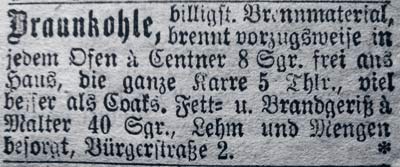 Braunkohle, billigst. Brennmaterial,
brennt vorzugsweise in
jedem Ofen à Centner 8 Sgr. frei ans
Haus, die ganze Karre 5 Thlr., viel
besser als Coaks. Fett- u. Brandgeriß à
Malter 40 Sgr., Lehm und Mengen
besorgt, Bürgerstraße 2. *